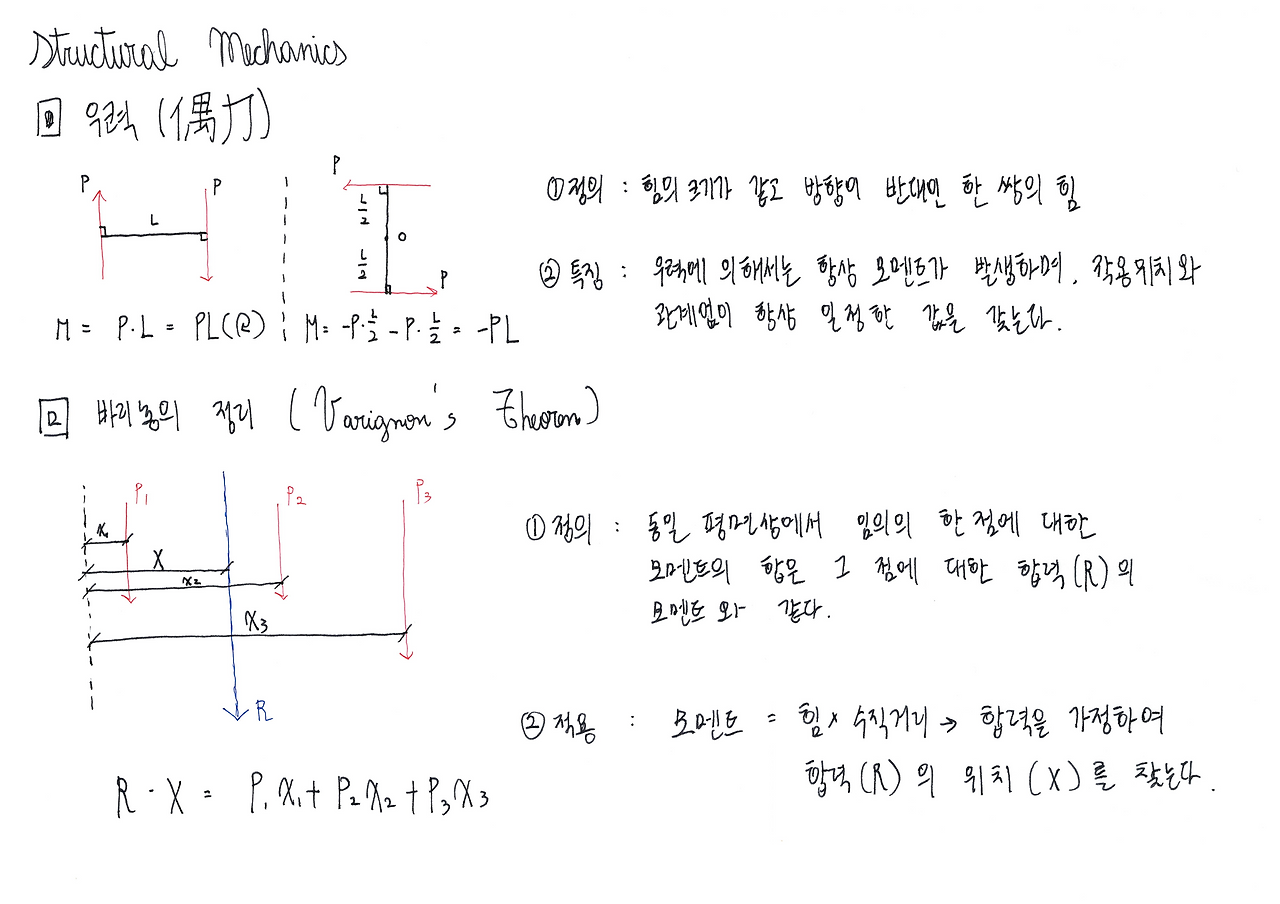 Structural Mechanics
1 우력 (偶力)
P P
L
M = P·L = PL(R)
P
L/2
O
L/2
P
M = -P·L/2 - P·L/2 = -PL
① 정의 : 힘의 크기가 같고 방향이 반대인 한 쌍의 힘
② 특징 : 우력에 의해서는 항상 모멘트가 발생하며, 작용위치와
관계없이 항상 일정한 값을 갖는다.
2 바리뇽의 정리 (Varignon's Theorem)
P₁ P₂ P₃
x₁
X
x₂
x₃
R
R · X = P₁x₁ + P₂x₂ + P₃x₃
① 정의 : 동일 평면상에서 임의의 한 점에 대한
모멘트의 합은 그 점에 대한 합력(R)의
모멘트와 같다.
② 적용 : 모멘트 = 힘 × 수직거리 → 합력을 가정하여
합력(R)의 위치(X)를 찾는다.